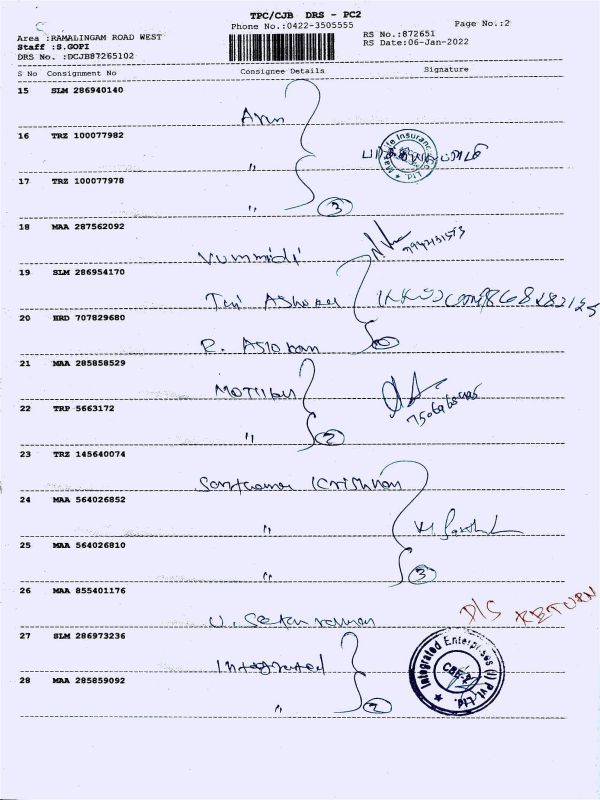 TPC/CJB DRS - PC2
Phone No.:0422-3505555
Page No.:2
Area :RAMALINGAM ROAD WEST
Staff :S.GOPI
DRS No. :DCJB87265102
RS No.:872651
RS Date:06-Jan-2022
S No Consignment No Consignee Details Signature
15 SLM 286940140
Arun
16 TRZ 100077982
"
17 TRZ 100077978
" 3
18 MAA 287562092
Vummidi
19 SLM 286954170
20 HRD 707829680
R. Asokan
21 MAA 285858529
22 TRP 5663172
" 2
23 TRZ 145640074
Krishnan
24 MAA 564026852
"
25 MAA 564026810
" 3
26 MAA 855401176
D/S RETURN
27 SLM 286973236
Integrated
Integrated Enterprises (I) Pvt. Ltd.
CBE-2
28 MAA 285859092
" 2